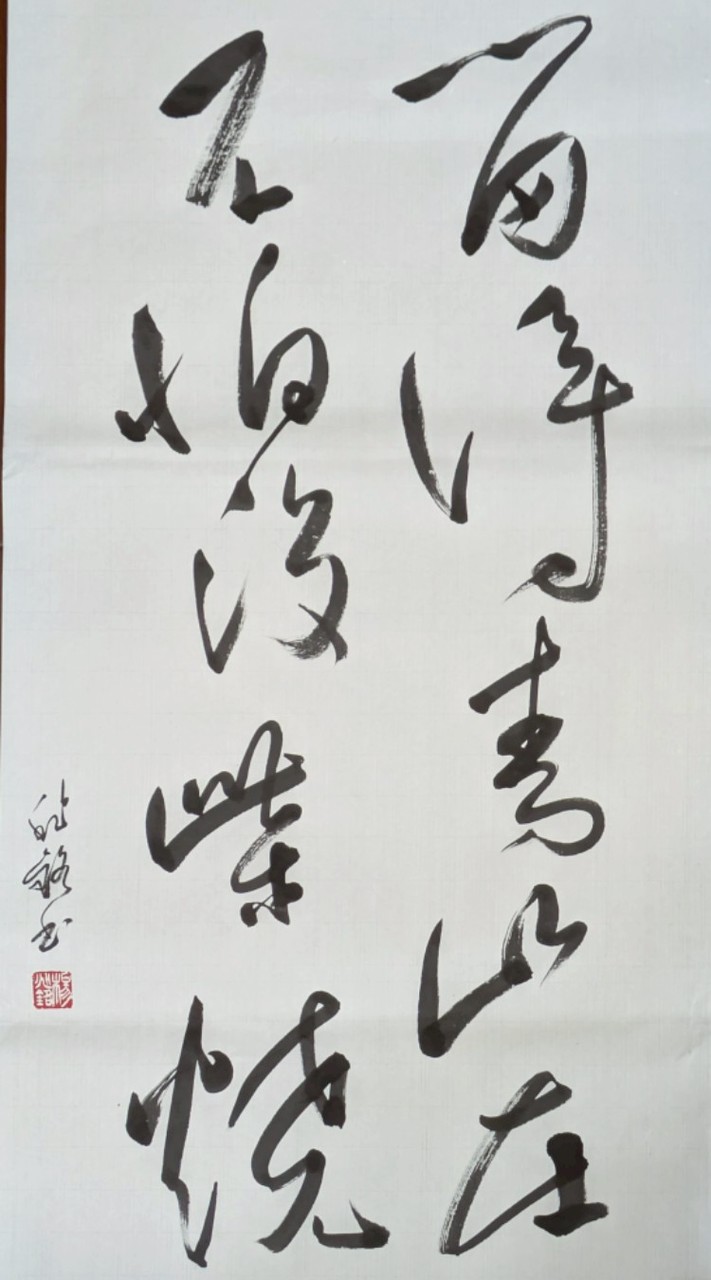 留得青山在
不怕没柴烧
书